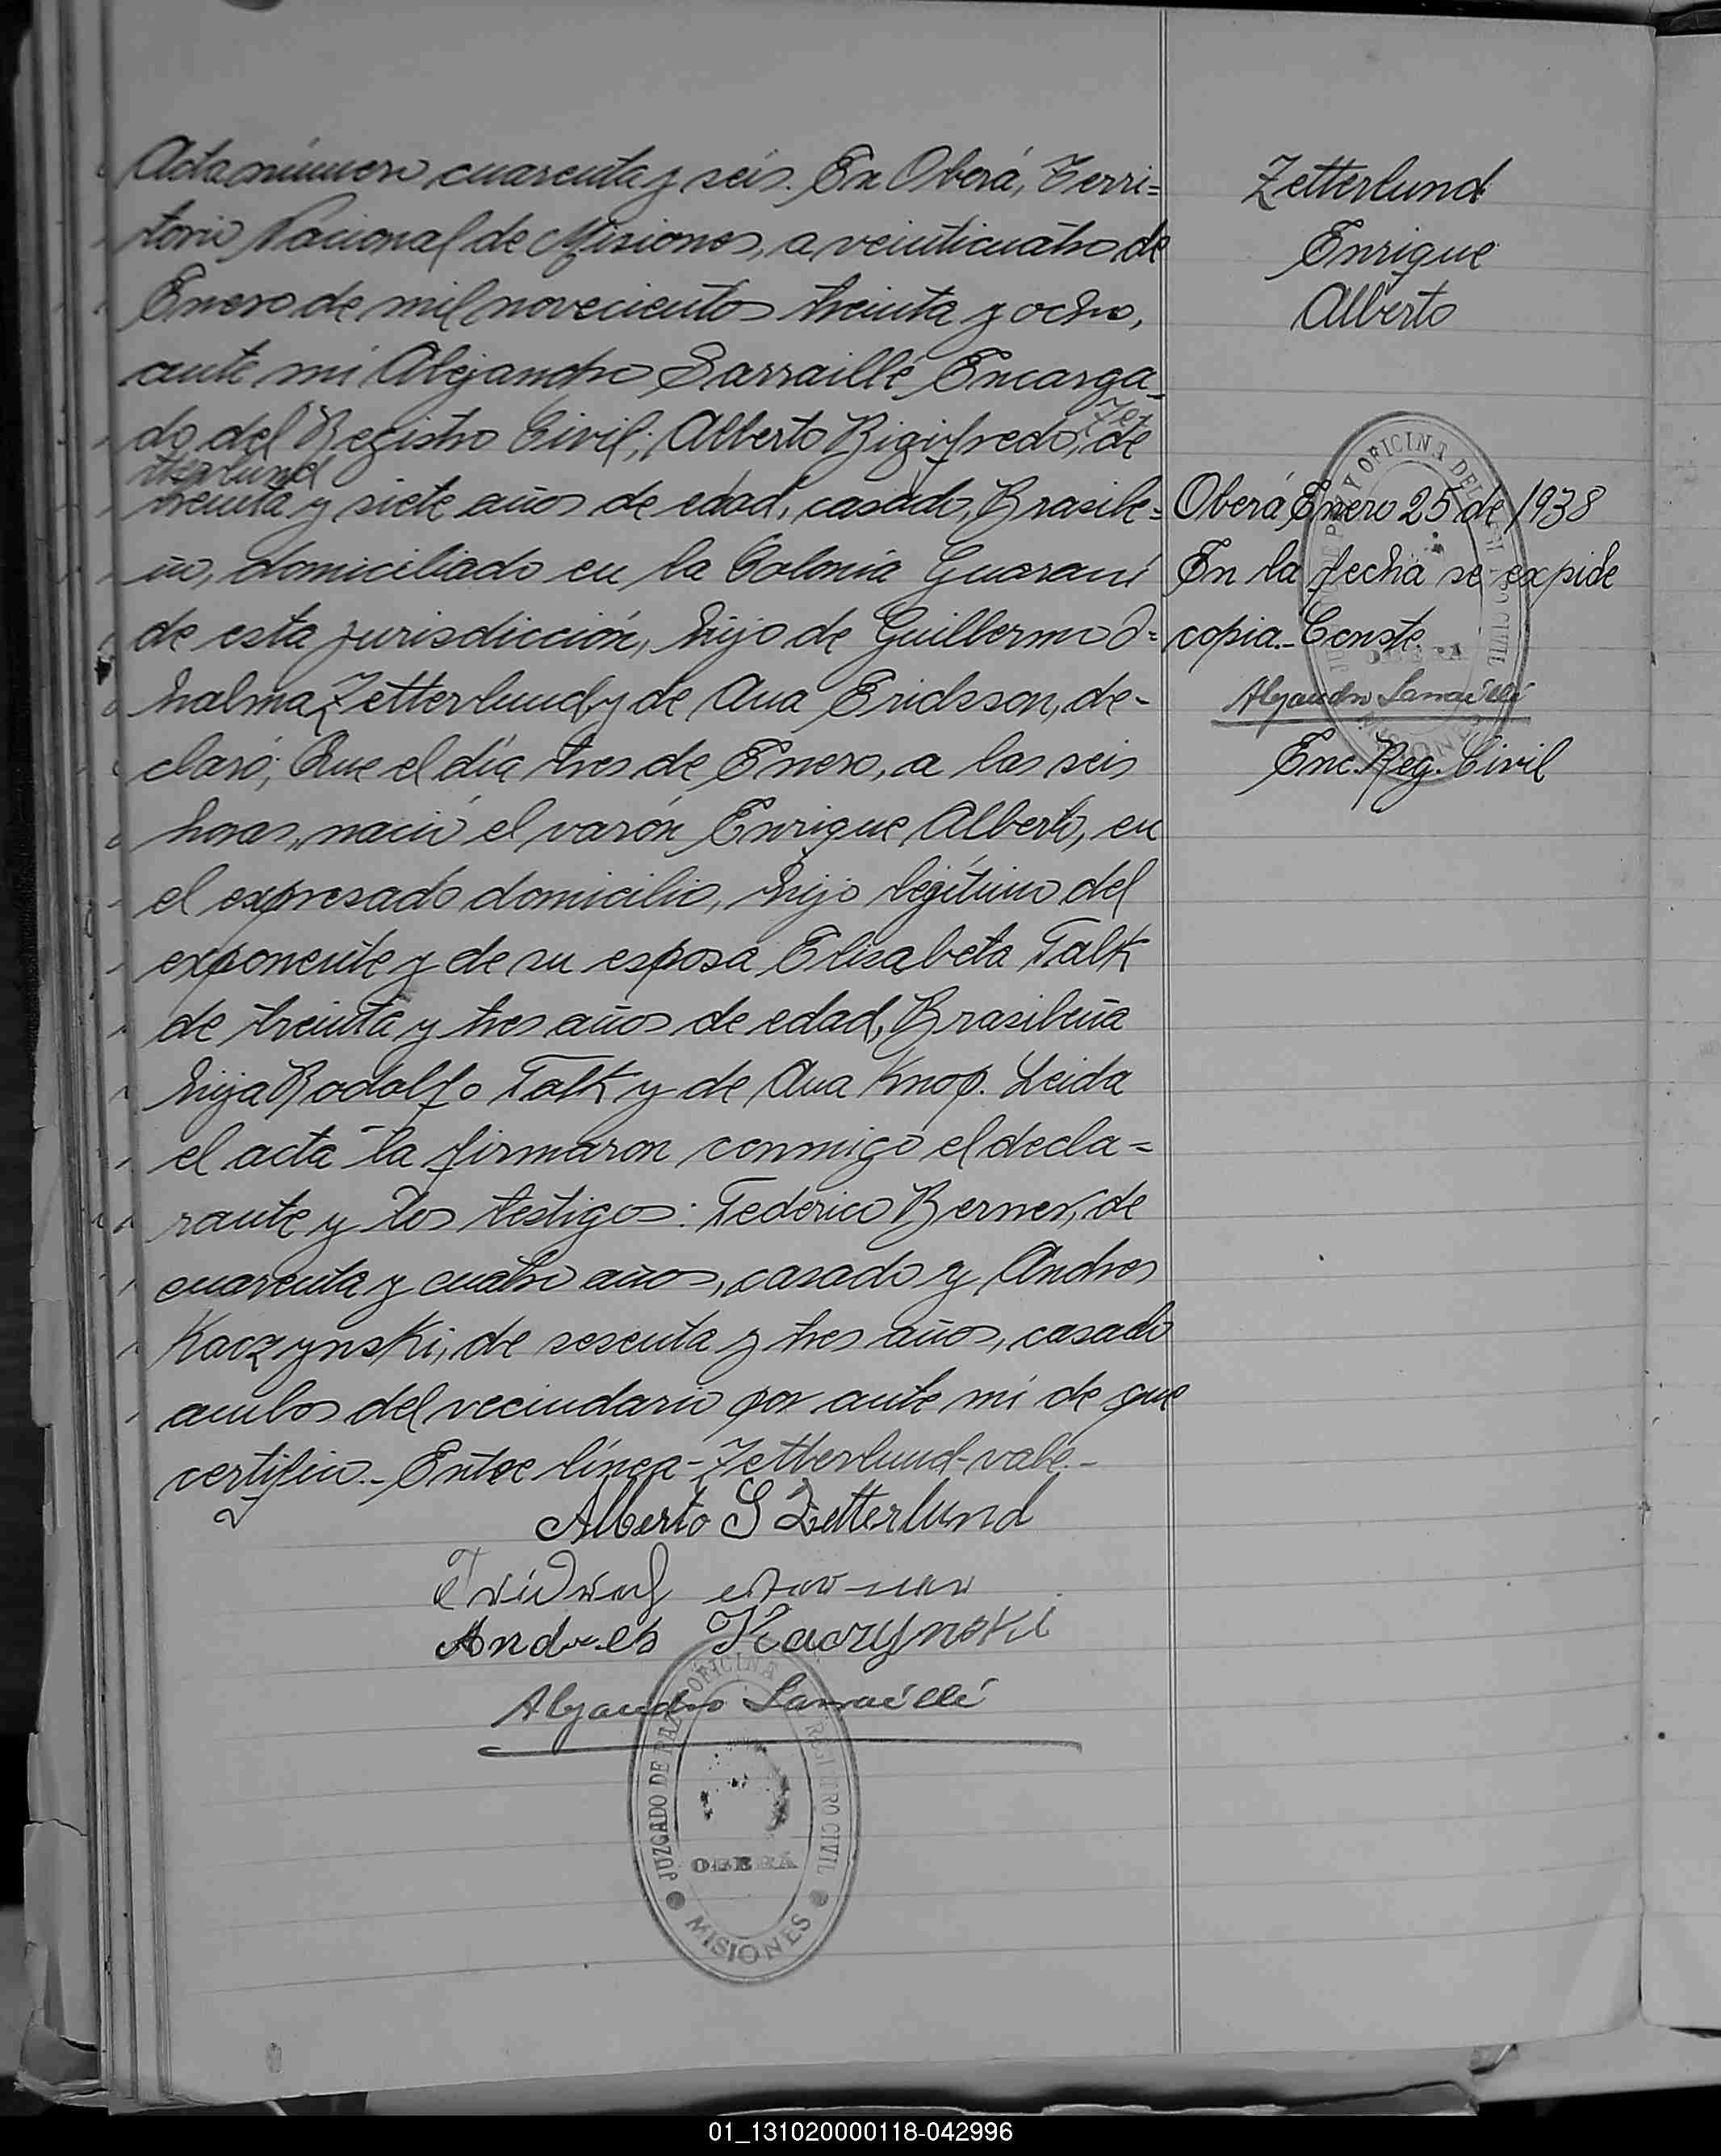 Acta número cuarenta y seis. En Oberá, Terri=
torio Nacional de Misiones, a veinticuatro de
Enero de mil novecientos treinta y ocho,
ante mí Alejandro Sarraillé Encarga-
do del Registro Civil; Alberto Rigifredo, Zet
de
tterlund
treinta y siete años de edad, casado, Brasile=
ño, domiciliado en la Colonia Guaraní
de esta jurisdicción, hijo de Guillermo O=
halma Zetterlund y de Ana Eridsson, de-
claró; Que el día tres de Enero, a las seis
horas, nació el varón Enrique Alberto, en
el expresado domicilio, hijo legítimo del
exponente y de su esposa Elisabeta Talk
de treinta y tres años de edad, Brasileña
hija Rodolfo Talk y de Ana Knop. Leida
el acta la firmaron conmigo el decla=
rante y los testigos: Federico Berner, de
cuarenta y cuatro años, casado y Andres
Kaczynski, de sesenta y tres años, casado
ambos del vecindario por ante mí de que
certifico.- Entre línea-Zetterlund-vale.-
Alberto S Zetterlund
Andres Kaczynski
Alejandro Sarraillé
JUZGADO DE PAZ Y OFICINA DEL REGISTRO CIVIL
OBERÁ
MISIONES
Zetterlund
Enrique
Alberto
Oberá Enero 25 de 1938
En la fecha se expide
copia.- Conste.
Alejandro Sarraillé
Enc. Reg. Civil
JUZGADO DE PAZ Y OFICINA DEL REGISTRO CIVIL
OBERÁ
MISIONES
01_131020000118-042996